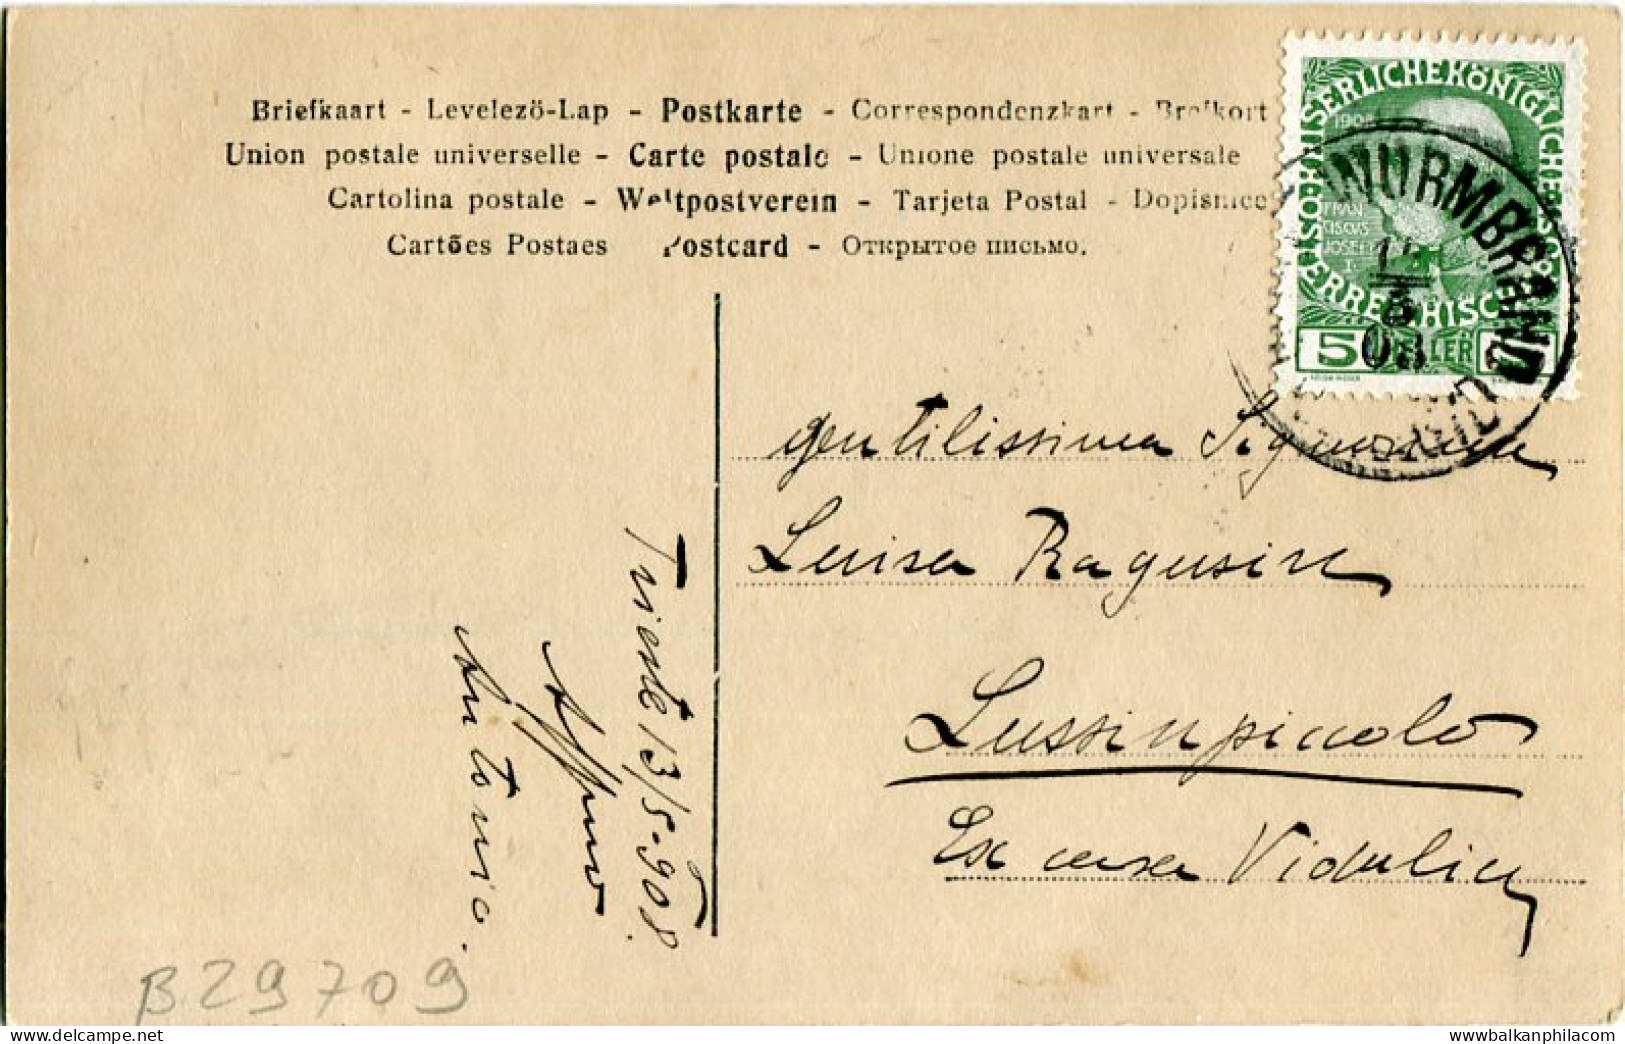 Briefkaart - Levelezö-Lap - Postkarte - Correspondenzkart - Brefkort
Union postale universelle - Carte postale - Unione postale universale
Cartolina postale - Weltpostverein - Tarjeta Postal - Dopisnice
Cartões Postaes Postcard - Открытое письмо.
KAISERLICHE KÖNIGLICHE
ÖSTERREICHISCHE POST
1908
FRAN
CISCVS
JOSEF
I
5 HELLER 5
WURMBRAND
08
gentilissima Signorina
Luisa Ragusin
Lussinpiccolo
Ex casa Vidulich
Trieste 13/5-908.
Antonio.
B29709
wwwbalkanphilacom